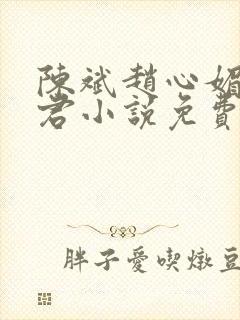 陳斌趙心媚
君小說免費
胖子愛喫燉豆